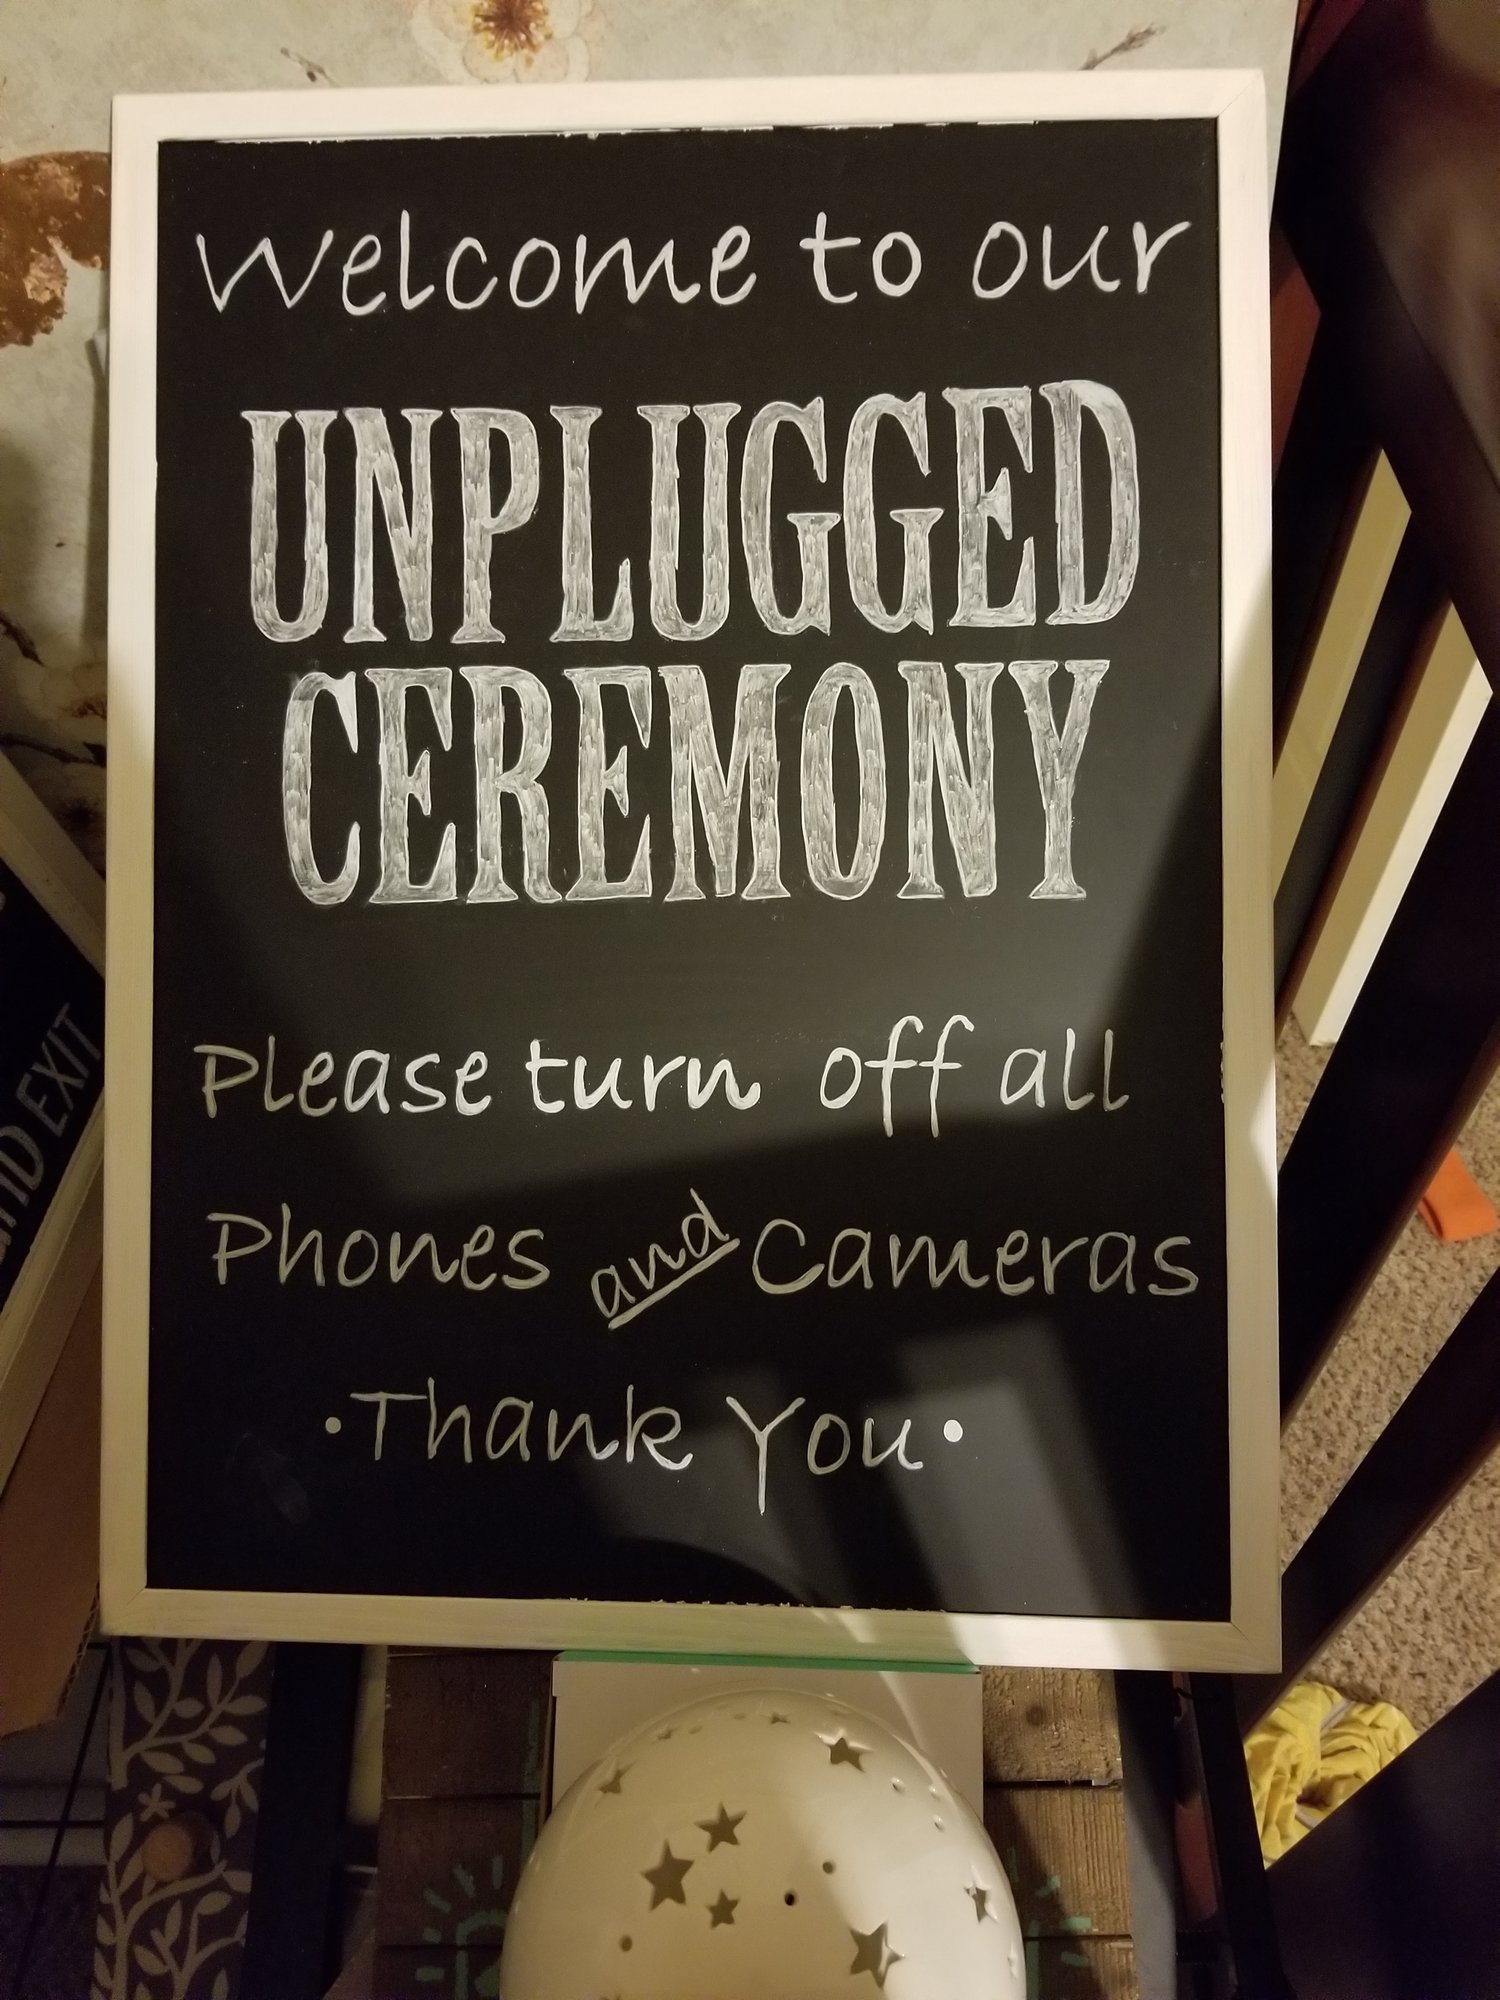 Welcome to our
UNPLUGGED
CEREMONY
Please turn off all
Phones and Cameras
•Thank You•
EXIT